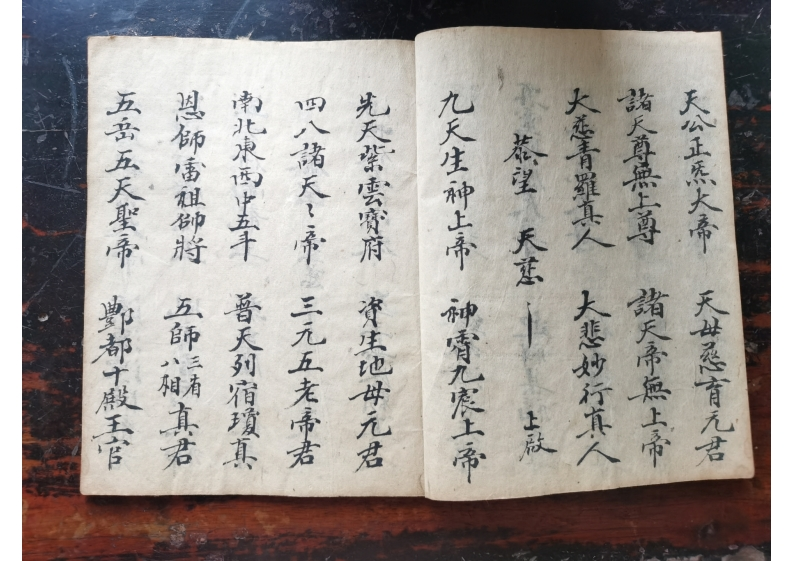 天公正炁大帝 天母慈育元君
諸天尊無上尊 諸天帝無上帝
大慈青羅真人 大悲妙行真人
恭望 天慈 上啟
九天生神上帝 神霄九宸上帝
先天紫雲寶府 資生地母元君
四八諸天〻帝 三元五老帝君
南北東西中五斗 普天列宿瓊真
恩師雷祖師將 五師三省八相真君
五岳五天聖帝 酆都十殿王官